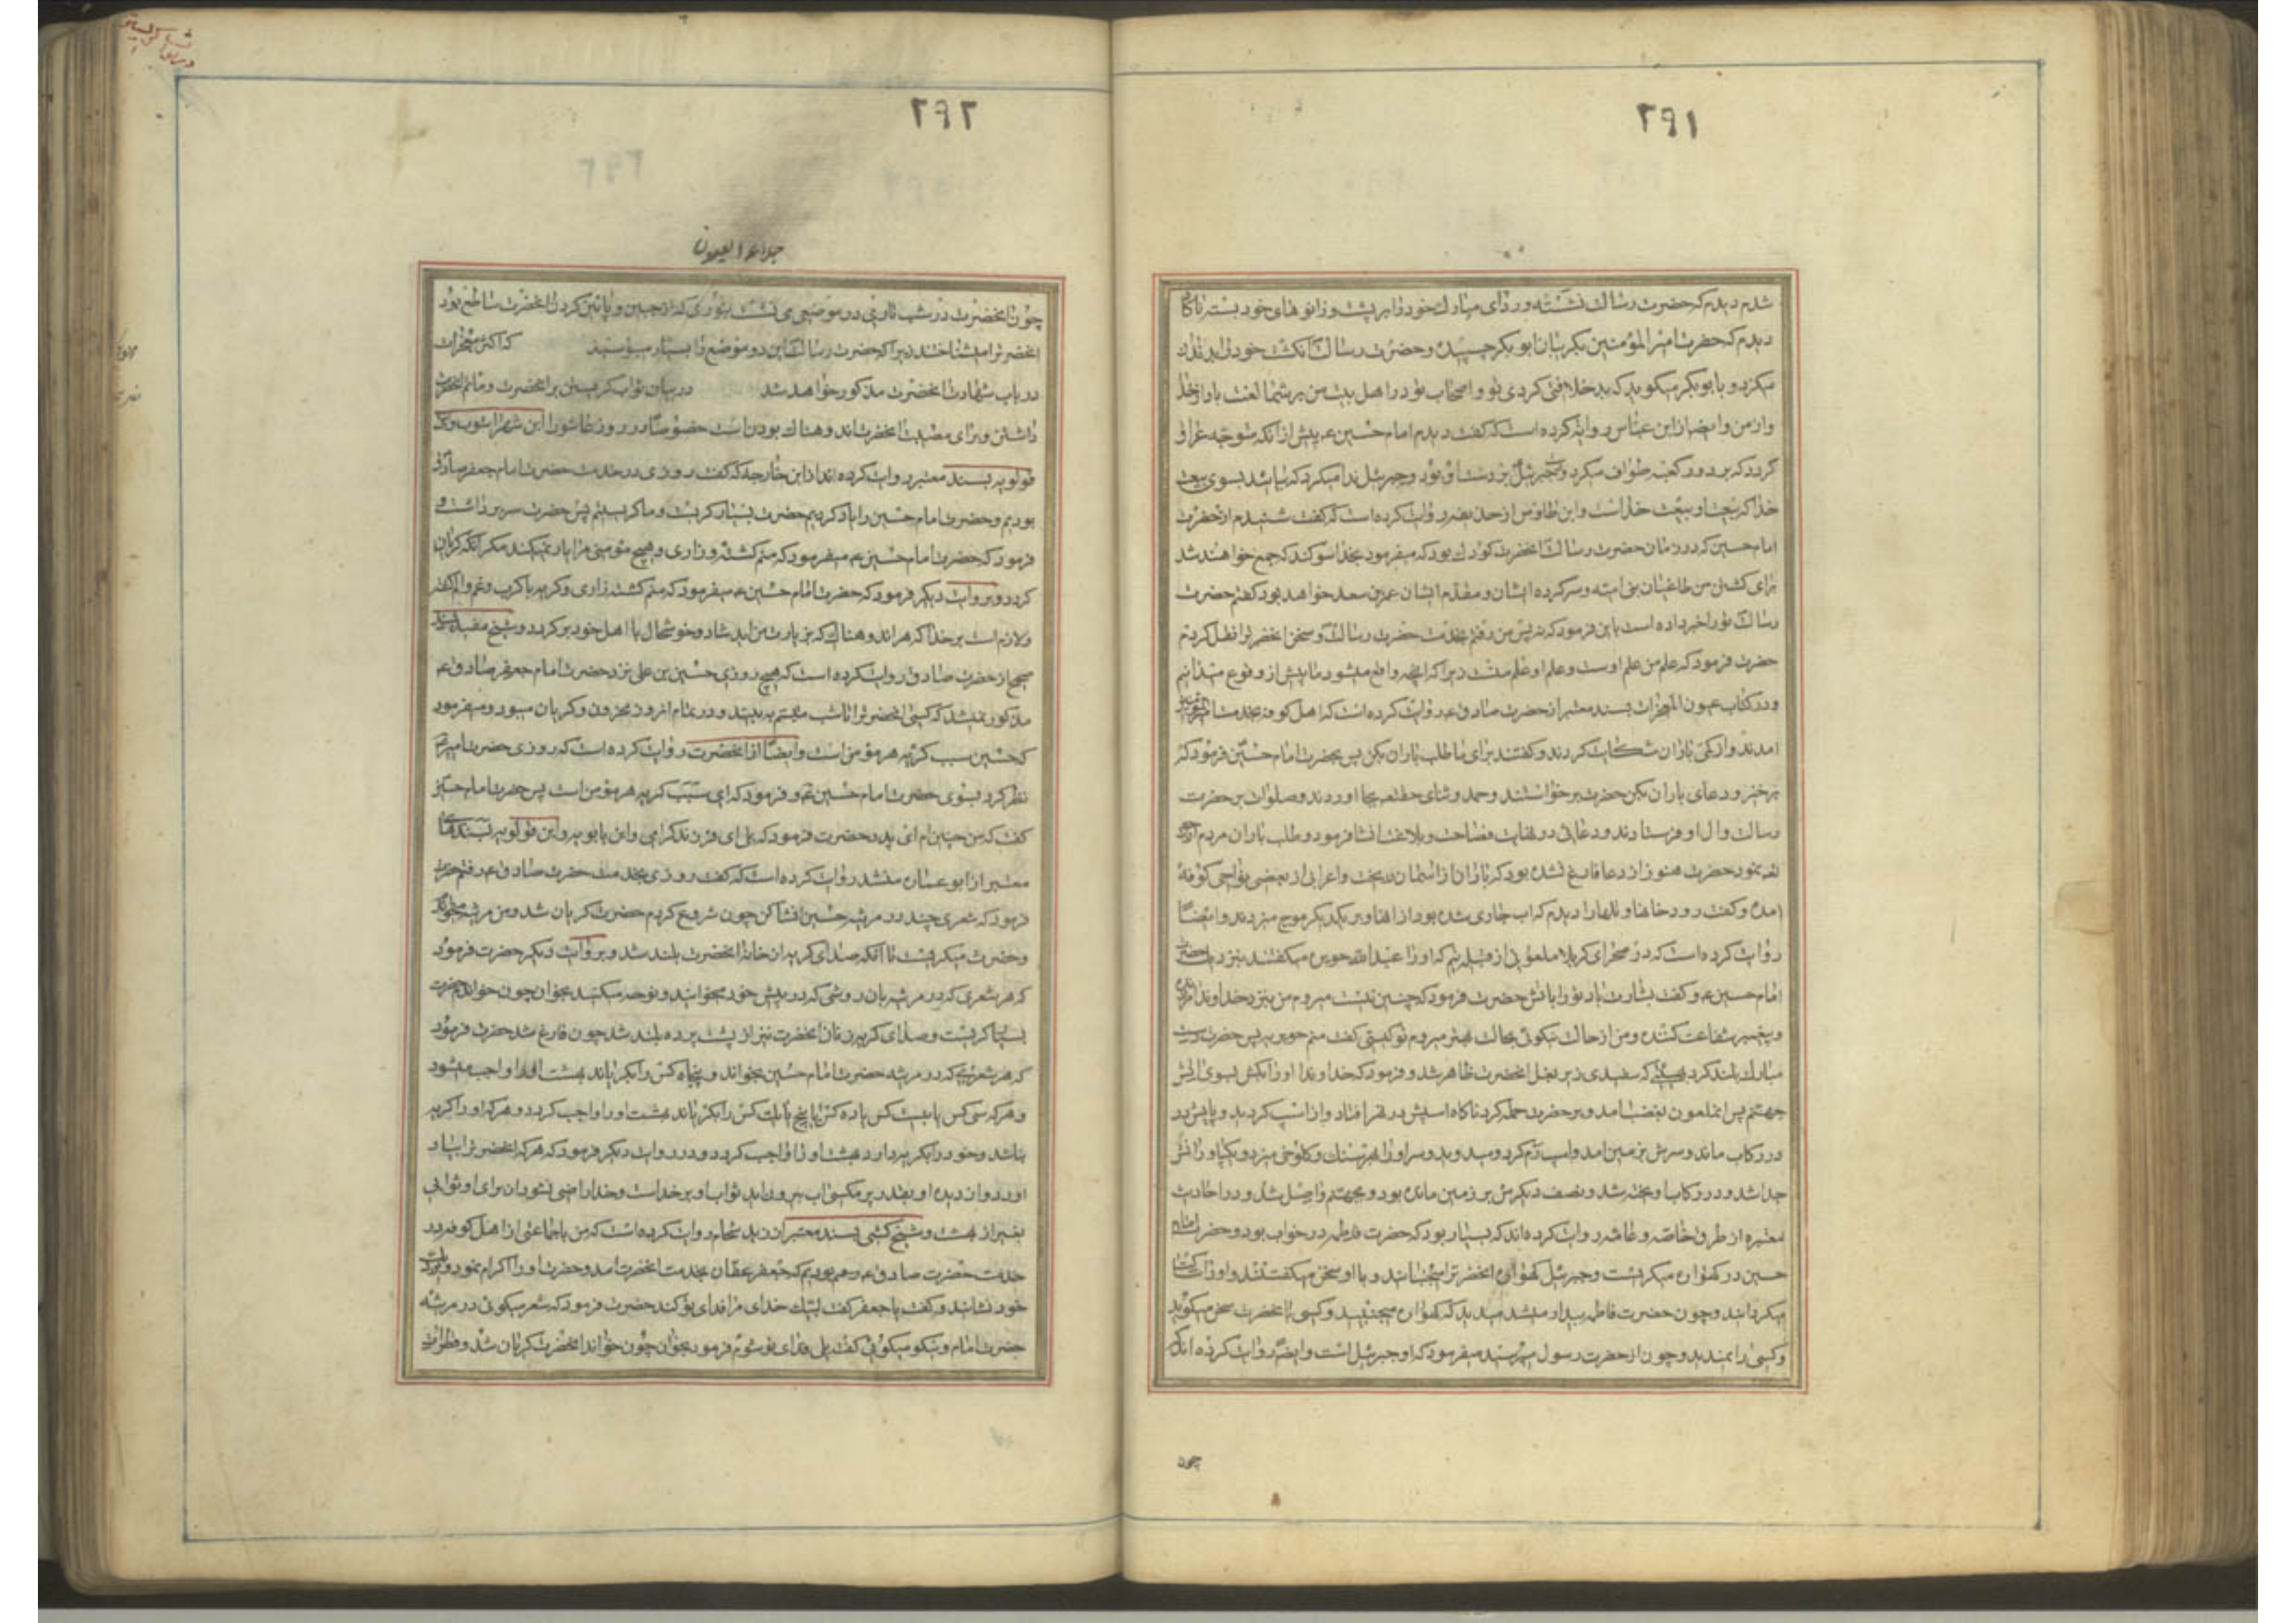 ۲۹۱
شدم دیدم که حضرت رسالت نشسته و ردای مبارک خود را بر پشت و زانوهای خود بسته ناکاه
دیدم که حضرت امیرالمؤمنین بکریبان ابوبکر چسبیده و حضرت رسالت انکشت خود را بدندان
میکزد و بابوبکر میکوید که بد خلافتی کردی تو و اصحاب تو در اهل بیت من بر شما لعنت باد از خدا
و از من و ایضا از ابن عباس روایت کرده است که کفت دیدم امام حسین ع پیش از آنکه متوجه عراق
کردد که بر دور کعبه طواف میکرد و جبرئیل بر دست او بود و جبرئیل ندا میکرد که بیائید بسوی بیعت
خدا که بیعت او بیعت خداست و ابن طاوس از حذیفه روایت کرده است که کفت شنیدم از حضرت
امام حسین که در زمان حضرت رسالت انحضرت کودک بود که میفرمود بخدا سوکند که جمع خواهند شد
برای کشتن من طاغیان بنی امیه و سرکرده ایشان و مقدم ایشان عمر بن سعد خواهد بود کفتم حضرت
رسالت تو را خبر داده است باین فرمود که نه پس من رفتم بخدمت حضرت رسالت و سخن انحضرترا نقل کردم
حضرت فرمود که علم من علم اوست و علم او علم منست زیرا که انچه واقع میشود ما پیش از وقوع میدانیم
و در کتاب عیون المعجزات بسند معتبر از حضرت صادق ع روایت کرده است که اهل کوفه بخدمت
امدند و از کمی باران شکایت کردند و کفتند برای ما طلب باران بکن پس بحضرت امام حسین فرمود که
برخیز و دعای باران بکن حضرت برخواستند و حمد و ثنای حقتعم بجا اوردند و صلوات بر حضرت
رسالت و ال او فرستادند و دعائی در نهایت فصاحت و بلاغت انشا فرمود و طلب باران
نمود حضرت هنوز از دعا فارغ نشده بود که باران از اسمان بریخت و اعرابی از بعضی نواحی کوفه
امده و کفت رودخانها و تلها را دیدم که اب جاری شده بود از انها و بر یکدیکر موج میزدند و ایضا
روایت کرده است که در صحرای کربلا ملعونی از قبیله تیم که او را عبدالله حویره میکفتند بنزد حضرت
امام حسین ع و کفت بشارت باد تو را باتش حضرت فرمود که چنین نیست میروم من بنزد خداوند
و پیغمبر شفاعت کننده و من از حالت نیکوئی بحالت بهتر میروم تو کیستی کفت منم حویره پس حضرت دست
مبارک بلند کرد که سفیدی زیر بغل انحضرت ظاهر شد و فرمود که خداوندا او را بکش بسوی اتش
جهنم پس انملعون بغضب امد و بر حضرت حمله کرد ناکاه اسبش در نهر افتاد و از اسب کردید و پایش در
در رکاب ماند و سرش بر زمین امد و اسب رم کرد و میدوید و سر او را بهر سنک و کلوخی میزد و یکپا و رانش
جدا شد و در رکاب اویخته شد و نصف دیکرش بر زمین مانده بود و بجهنم واصل شد و در احادیث
معتبره از طرق خاصه و عامه روایت کرده اند که بسیار بود که حضرت فاطمه در خواب بود و حضرت امام
حسین در کهواره میکریست و جبرئیل کهواره انحضرترا میجنبانید و با او سخن میکفت و او را ساکت
میکردانید و چون حضرت فاطمه بیدار میشد میدید که کهواره میجنبید و کسی با انحضرت سخن میکوید
و کسی را نمیدید و چون از حضرت رسول میپرسید میفرمود که او جبرئیل است و ایضا روایت کرده اند که
چون
۲۹۲
جلاء العیون
چون انحضرت در شب تاری در موضعی می نشست بنوری که از جبین و پائین کردن انحضرت ساطع بود
انحضرترا میشناختند زیرا که حضرت رسالت این دو موضع را بسیار میبوسید که اکثر معجزات
در باب شهادت انحضرت مذکور خواهد شد در بیان ثواب کریستن بر انحضرت و ماتم انحضرت
داشتن و برای مصیبت انحضرت اندوهناک بودن است خصوصا در روز عاشورا ابن شهراشوب و ابن
قولویه بسند معتبر روایت کرده اند از ابن خارجه که کفت روزی در خدمت حضرت امام جعفر صادق
بودیم و حضرت امام حسین را یاد کردیم حضرت بسیار کریست و ما کریستیم پس حضرت سر برداشت و
فرمود که حضرت امام حسین ع میفرمود که منم کشته زاری و هیچ مؤمنی مرا یاد نمیکند مکر آنکه کریان
کردد و بروایت دیکر فرمود که حضرت امام حسین ع میفرمود که منم کشته زاری و کریه با کرب و غم و الم کشته
و لازمست بر خدا که هر اندوهناک که بزیارت من اید شاد و خوشحال با اهل خود برکردد و شیخ مفید بسند
صحیح از حضرت صادق روایت کرده است که هیچ روزی حسین بن علی نزد حضرت امام جعفر صادق ع
مذکور نمیشد که کسی انحضرترا تا شب متبسم ببیند و در تمام انروز محزون و کریان میبود و میفرمود
که حسین سبب کریه هر مؤمن است و ایضا از انحضرت روایت کرده است که روزی حضرت امیر ع
نظر کرد بسوی حضرت امام حسین ع و فرمود که ای سبب کریه هر مؤمن است پس حضرت امام حسین
کفت که من چنین ام ای پدر حضرت فرمود که بلی ای فرزند کرامی و ابن بابویه و ابن قولویه بسندهای
معتبر از ابو عماره منشد روایت کرده است که کفت روزی بخدمت حضرت صادق ع رفتم حضرت
فرمود که شعری چند در مرثیه حسین انشا کن چون شروع کردم حضرت کریان شد و من مرثیه میخواندم
و حضرت میکریست تا آنکه صدای کریه از خانه انحضرت بلند شد و بروایت دیکر حضرت فرمود
که هر شعری که در مرثیه بان روشی که در پیش خود میخوانید و نوحه میکنید بخوان چون خواندم حضرت
بسیار کریست و صدای کریه زنان انحضرت نیز از پشت پرده بلند شد چون فارغ شد حضرت فرمود
که هر شعری که در مرثیه حضرت امام حسین بخواند و پنجاه کس را بکریاند بهشت او را واجب میشود
و هر که سی کس یا بیست کس یا ده کس یا پنج یا یک کس را بکریاند بهشت او را واجب کردد و هر که او را کریه
نباشد و خود را بکریه بدارد بهشت او را واجب کردد و در روایت دیکر فرمود که هر که انحضرترا یاد
اورد و از دیده او بقدر پر مکسی اب بیرون اید ثواب او بر خداست و خدا راضی نشود از برای او ثوابی
بغیر از بهشت و شیخ کشی بسند معتبر از زید شحام روایت کرده است که من با جماعتی از اهل کوفه در
خدمت حضرت صادق ع بودیم که جعفر عفان بخدمت انحضرت امد و حضرت او را اکرام نمود و نزدیک
خود نشانید و کفت یا جعفر کفت لبیک خدای مرا فدای تو کند حضرت فرمود که شعر میکوئی در مرثیه
حضرت امام و نیکو میکوئی کفت بلی فدای تو شوم فرمود بخوان چون خواند انحضرت کریان شد و قطرات